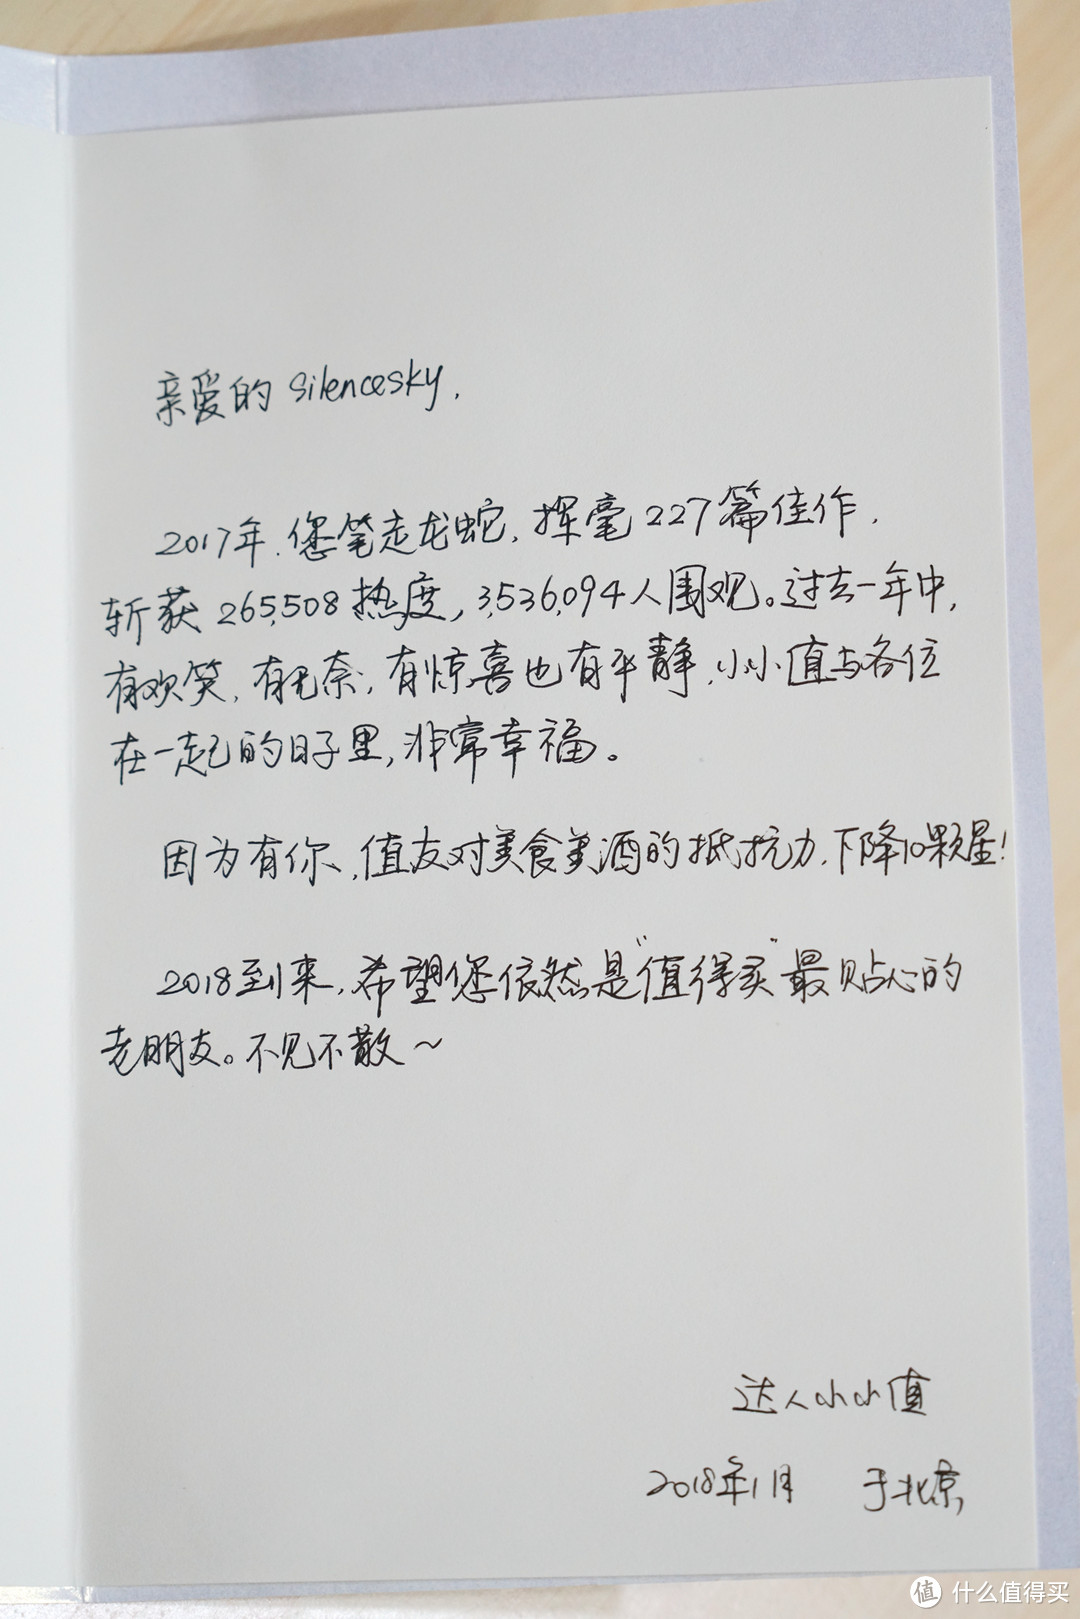 亲爱的 silencesky,
2017年,您笔走龙蛇,挥毫227篇佳作,
斩获 265,508热度,3,536,094人围观。过去一年中,
有欢笑,有无奈,有惊喜也有平静,小小值与各位
在一起的日子里,非常幸福。
因为有你,值友对美食美酒的抵抗力,下降10颗星!
2018到来,希望您依然是"值得买"最贴心的
老朋友。不见不散~
达人小小值
2018年1月 于北京
值 什么值得买